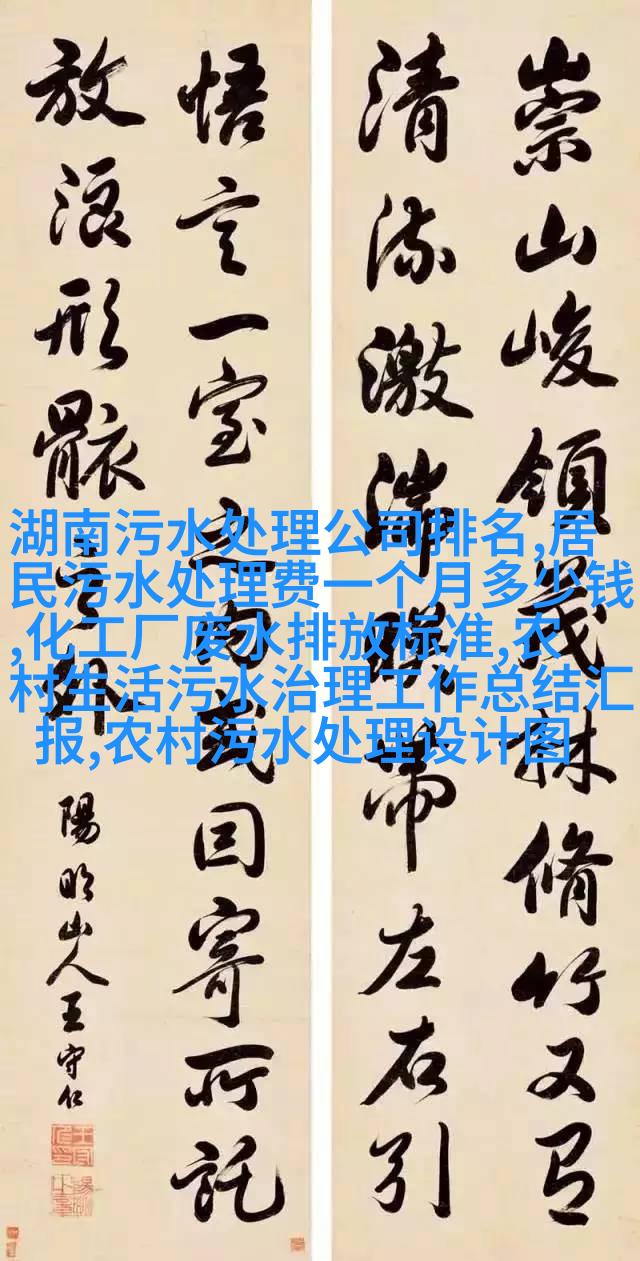 崇山峻領茂林脩竹又有
清流激湍暎帶左右引
悟言一室之內或因寄所託
放浪形骸之外
陽明山人王守仁
湖南污水处理公司排名,居
民污水处理费一个月多少钱
,化工厂废水排放标准,农
村生活污水治理工作总结汇
报,农村污水处理设计图